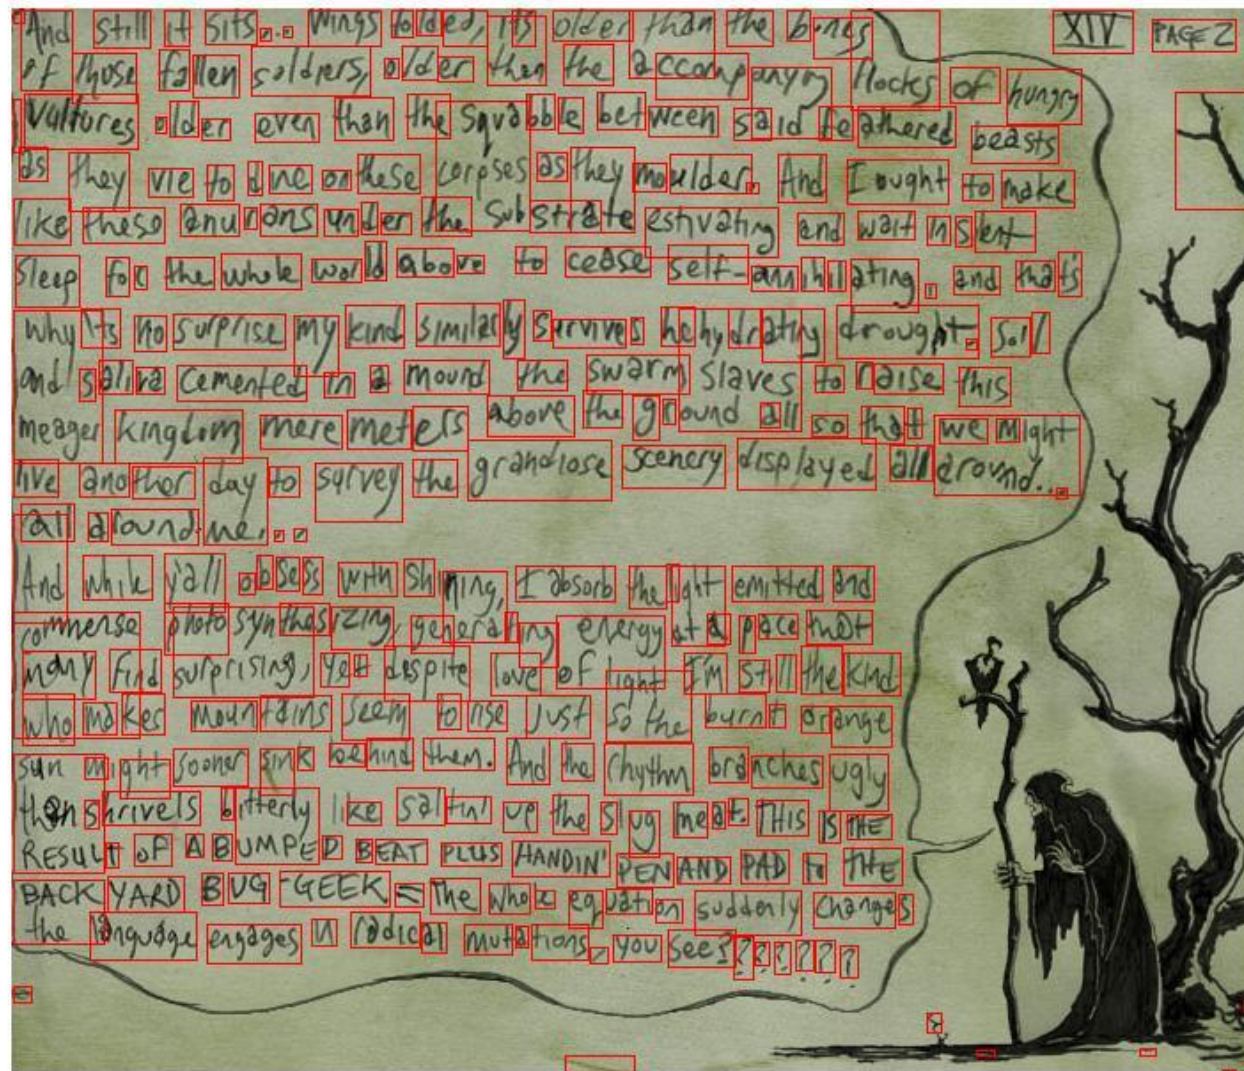 XIV PAGE 2
And still it sits... wings folded, it's older than the bones
of those fallen soldiers, older than the accompanying flocks of hungry
vultures older even than the squabble between said feathered beasts
as they vie to dine on these corpses as they moulder. And I ought to make
like these anurans under the substrate estivating and wait in silent
sleep for the whole world above to cease self-annihilating. and that's
why it's no surprise my kind similarly survives dehydrating drought. Soil
and saliva cemented in a mound the swarm slaves to raise this
meager kingdom mere meters above the ground all so that we might
live another day to survey the grandiose scenery displayed all around...
all around me...
And while y'all obsess with shining, I absorb the light emitted and
commense photosynthesizing, generating energy at a place that
many find surprising, yet despite love of light I'm still the kind
who makes mountains seem to rise just so the burnt orange
sun might sooner sink behind them. And the rhythm branches ugly
than shrivels bitterly like saltin' up the slug meat. THIS IS THE
RESULT OF A BUMPED BEAT PLUS HANDIN' PEN AND PAD to THE
BACK YARD BUG-GEEK = The whole equation suddenly changes
the language engages in radical mutations, you see???????